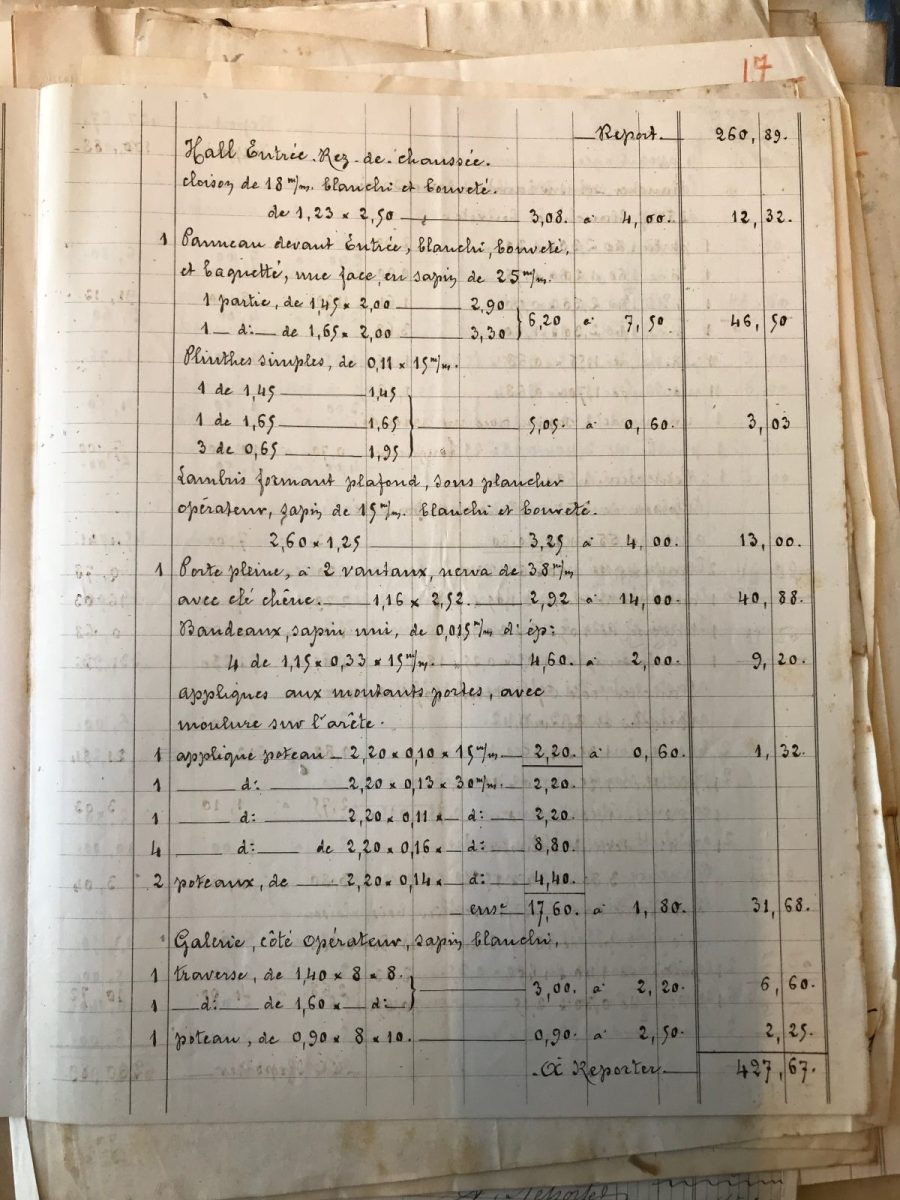 17
Report. 260,89.
Hall Entrée. Rez-de-chaussée.
cloison de 18 m/m. blanchi et bouveté.
de 1,23 × 2,50 3,08. à 4,00. 12,32.
1 Panneau devant Entrée, blanchi, bouveté,
et baguetté, une face, en sapin de 25 m/m.
1 partie, de 1,45 × 2,00 2,90
6,20 à 7,50 46,50
1 — d: — de 1,65 × 2,00 3,30
Plinthes simples, de 0,11 × 15 m/m.
1 de 1,45 1,45
1 de 1,65 1,65 5,05. à 0,60. 3,03
3 de 0,65 1,95
Lambris formant plafond, sous plancher
opérateur, sapin de 15 m/m. blanchi et bouveté.
2,60 × 1,25 3,25 à 4,00. 13,00.
1 Porte pleine, à 2 vantaux, nerva de 38 m/m
avec clé chêne. 1,16 × 2,52. 2,92 à 14,00. 40,88.
Bandeaux, sapin uni, de 0,015 m/m d'ép:
4 de 1,15 × 0,33 × 15 m/m. 4,60. à 2,00. 9,20.
appliques aux montants portes, avec
moulure sur l'arête.
1 applique poteau 2,20 × 0,10 × 15 m/m 2,20. à 0,60. 1,32.
1 d: 2,20 × 0,13 × 30 m/m. 2,20.
1 d: 2,20 × 0,11 × d: 2,20.
4 d: de 2,20 × 0,16 × d: 8,80.
2 poteaux, de 2,20 × 0,14 × d: 4,40.
ense 17,60. à 1,80. 31,68.
Galerie, côté opérateur, sapin blanchi,
1 traverse, de 1,40 × 8 × 8.
3,00. à 2,20. 6,60.
1 d: de 1,60 × d:
1 poteau, de 0,90 × 8 × 10. 0,90. à 2,50. 2,25.
A Reporter 427,67.